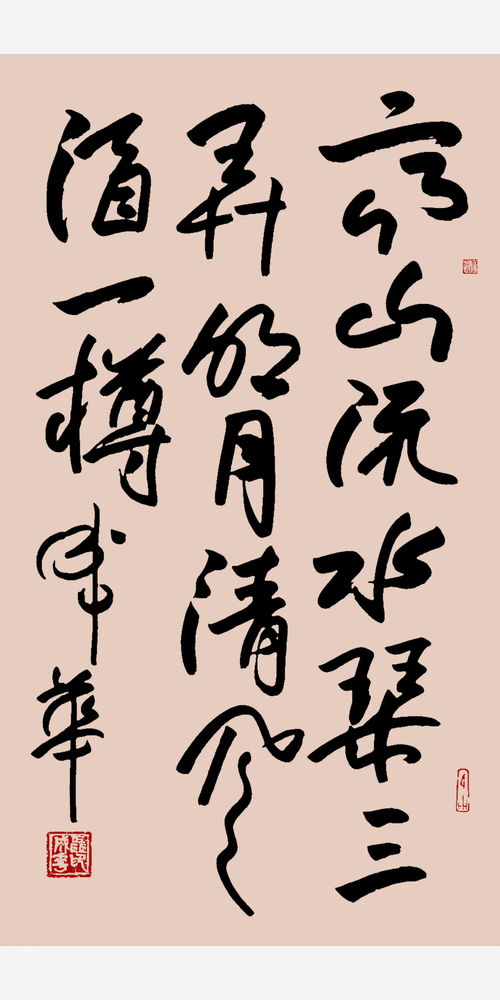 高山流水琹三
弄明月清风
酒一樽
華